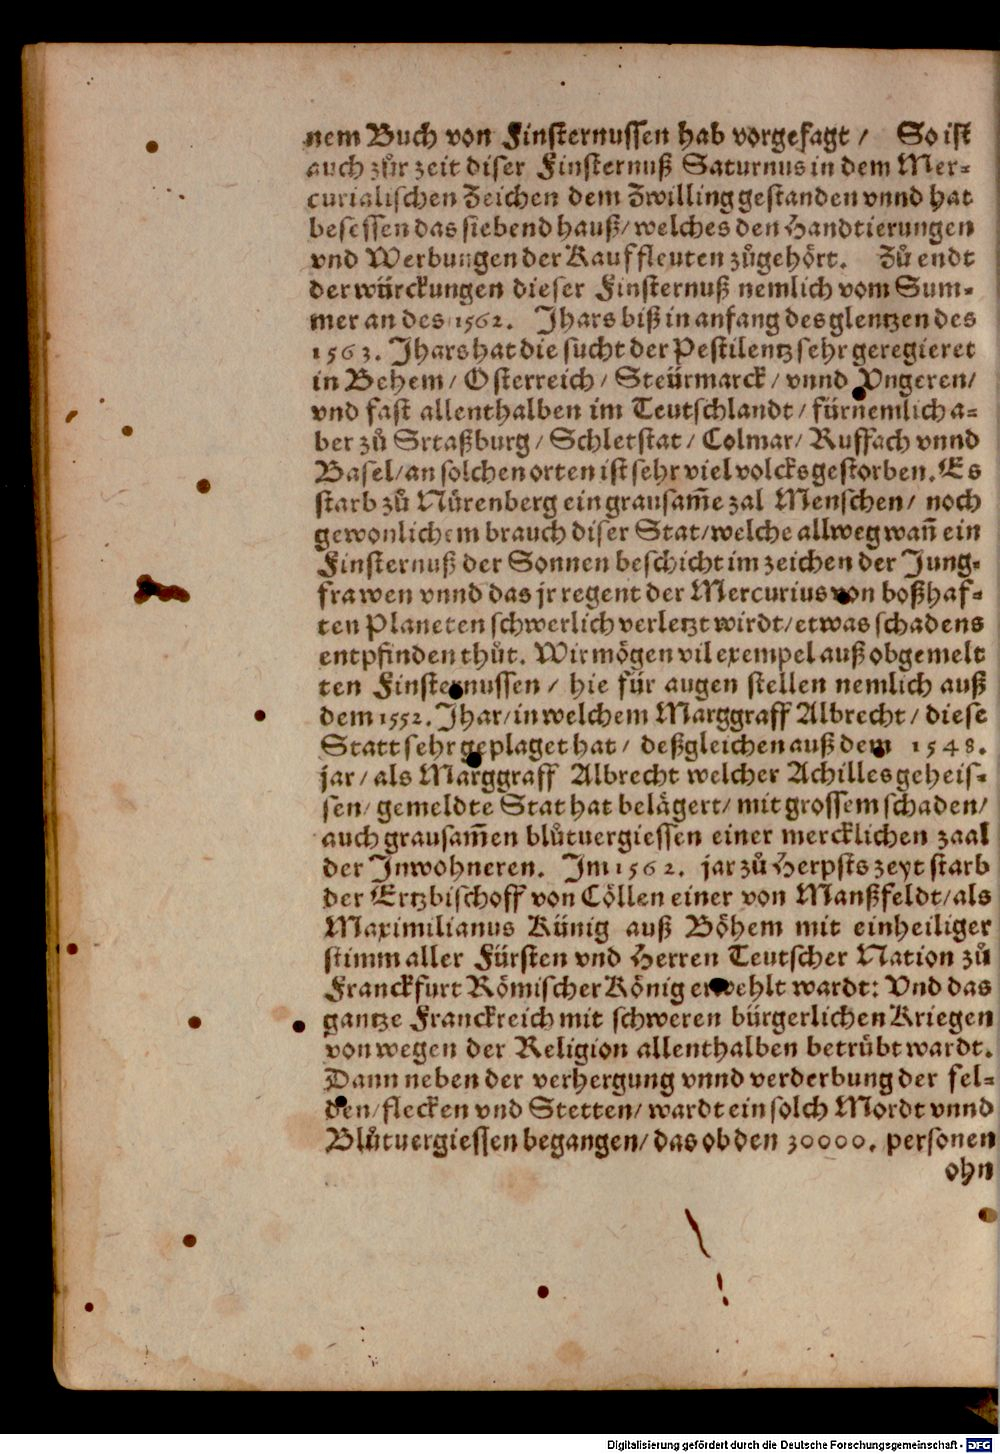 nem Buch von Finsternussen hab vorgesagt / So ist
auch zůr zeit diser Finsternuß Saturnus in dem Mer-
curialischen Zeichen dem Zwilling gestanden vnnd hat
besessen das siebend hauß/ welches den Handtierungen
vnd Werbungen der Kauffleuten zůgehört. Zů endt
der würckungen dieser Finsternuß nemlich vom Sum-
mer an des 1562. Jhars biß in anfang des glentzen des
1563. Jhars hat die sucht der Pestilentz sehr geregieret
in Behem / Osterreich / Steürmarck / vnnd Vngeren/
vnd fast allenthalben im Teutschlandt / fürnemlich a-
ber zů Srtaßburg / Schletstat / Colmar/ Ruffach vnnd
Basel/ an solchen orten ist sehr viel volcks gestorben. Es
starb zů Nürenberg ein grausam̃e zal Menschen/ noch
gewonlichem brauch diser Stat/ welche allweg wañ ein
Finsternuß der Sonnen beschicht im zeichen der Jung-
frawen vnnd das jr regent der Mercurius von boßhaf-
ten Planeten schwerlich verletzt wirdt/ etwas schadens
entpfinden thůt. Wir mögen vil exempel auß obgemelt
ten Finsternussen / hie für augen stellen nemlich auß
dem 1552. Jhar/ in welchem Marggraff Albrecht / diese
Statt sehr geplaget hat / deßgleichen auß dem 1548.
jar / als Marggraff Albrecht welcher Achilles geheis-
sen/ gemeldte Stat hat belägert/ mit grossem schaden/
auch grausam̃en blůtuergiessen einer mercklichen zaal
der Jnwohneren. Jm 1562. jar zů Herpsts zeyt starb
der Ertzbischoff von Cöllen einer von Manßfeldt/ als
Maximilianus Künig auß Böhem mit einheiliger
stimm aller Fürsten vnd Herren Teutscher Nation zů
Franckfurt Römischer König erwehlt wardt: Vnd das
gantze Franckreich mit schweren bürgerlichen Kriegen
von wegen der Religion allenthalben betrübt wardt.
Dann neben der verhergung vnnd verderbung der fel-
den/ flecken vnd Stetten/ wardt ein solch Mordt vnnd
Blůtuergiessen begangen/ das ob den 30000. personen
ohn
Digitalisierung gefördert durch die Deutsche Forschungsgemeinschaft - DFG